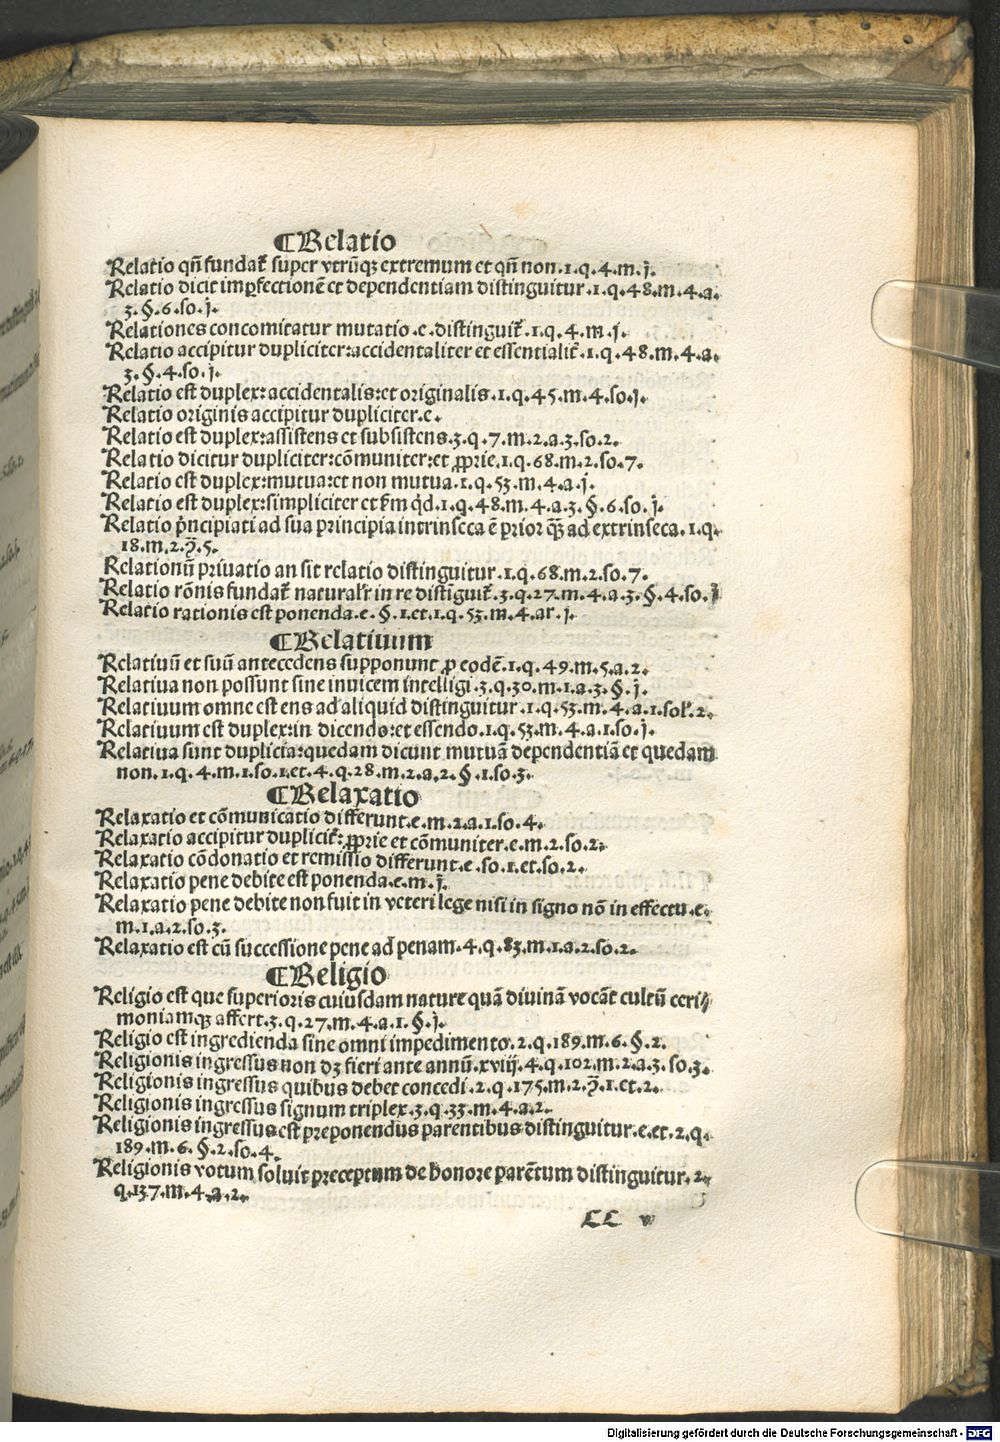 ¶Relatio
Relatio qñ fundat᷑ super vtrũqꝫ extremum et qñ non.1.q.4.m.j.
Relatio dicit imꝑfectionẽ et dependentiam distinguitur.1.q.48.m.4.a.
3.§.6.so.j.
Relationes concomitatur mutatio.e.distinguit᷑.1.q.4.m.j.
Relatio accipitur dupliciter:accidentaliter et essentialit᷑.1.q.48.m.4.a.
3.§.4.so.j.
Relatio est duplex:accidentalis:et originalis.1.q.45.m.4.so.j.
Relatio originis accipitur dupliciter.e.
Relatio est duplex:assistens et subsistens.3.q.7.m.2.a.3.so.2.
Relatio dicitur dupliciter:cõmuniter:et ꝓprie.1.q.68.m.2.so.7.
Relatio est duplex:mutua:et non mutua.1.q.53.m.4.a.j.
Relatio est duplex:simpliciter et ẜm qd.1.q.48.m.4.a.3.§.6.so.j.
Relatio p̃ncipiati ad sua principia intrinseca ẽ prior qꝫ ad extrinseca.1.q.
18.m.2.ꝟ.5.
Relationũ priuatio an sit relatio distinguitur.1.q.68.m.2.so.7.
Relatio rõnis fundat᷑ naturalr̃ in re distĩguit᷑.3.q.27.m.4.a.3.§.4.so.j
Relatio rationis est ponenda.e.§.1.et.1.q.53.m.4.ar.j.
¶Relatiuum
Relatiuũ et suũ antecedens supponunt ꝓ eodẽ.1.q.49.m.5.a.2.
Relatiua non possunt sine inuicem intelligi.3.q.30.m.1.a.3.§.j.
Relatiuum omne est ens ad aliquid distinguitur.1.q.53.m.4.a.1.sol᷑.2.
Relatiuum est duplex:in dicendo:et essendo.1.q.53.m.4.a.1.so.j.
Relatiua sunt duplicia:quedam dicunt mutuã dependentiã et quedam
non.1.q.4.m.1.so.1.et.4.q.28.m.2.a.2.§.1.so.3.
¶Relaxatio
Relaxatio et cõmunicatio differunt.e.m.2.a.1.so.4.
Relaxatio accipitur duplicit᷑:ꝓprie et cõmuniter.e.m.2.so.2.
Relaxatio cõdonatio et remissio differunt.e.so.1.et.so.2.
Relaxatio pene debite est ponenda.e.m.j.
Relaxatio pene debite non fuit in veteri lege nisi in signo nõ in effectu.e.
m.1.a.2.so.3.
Relaxatio est cũ successione pene ad penam.4.q.83.m.1.a.2.so.2.
¶Religio
Religio est que superioris cuiusdam nature quã diuinã vocãt cultũ ceri⸗
moniamqꝫ affert.3.q.27.m.4.a.1.§.j.
Religio est ingredienda sine omni impedimento.2.q.189.m.6.§.2.
Religionis ingressus non dꝫ fieri ante annũ.xviij.4.q.102.m.2.a.3.so.3.
Religionis ingressus quibus debet concedi.2.q.175.m.2.ꝟ.1.et.2.
Religionis ingressus signum triplex.3.q.33.m.4.a.2.
Religionis ingressus est preponendus parentibus distinguitur.e.et.2.q.
189.m.6.§.2.so.4.
Religionis votum soluit preceptum de honore parẽtum distinguitur.2.
q.137.m.4.a.2.
LL v
Digitalisierung gefördert durch die Deutsche Forschungsgemeinschaft - DFG